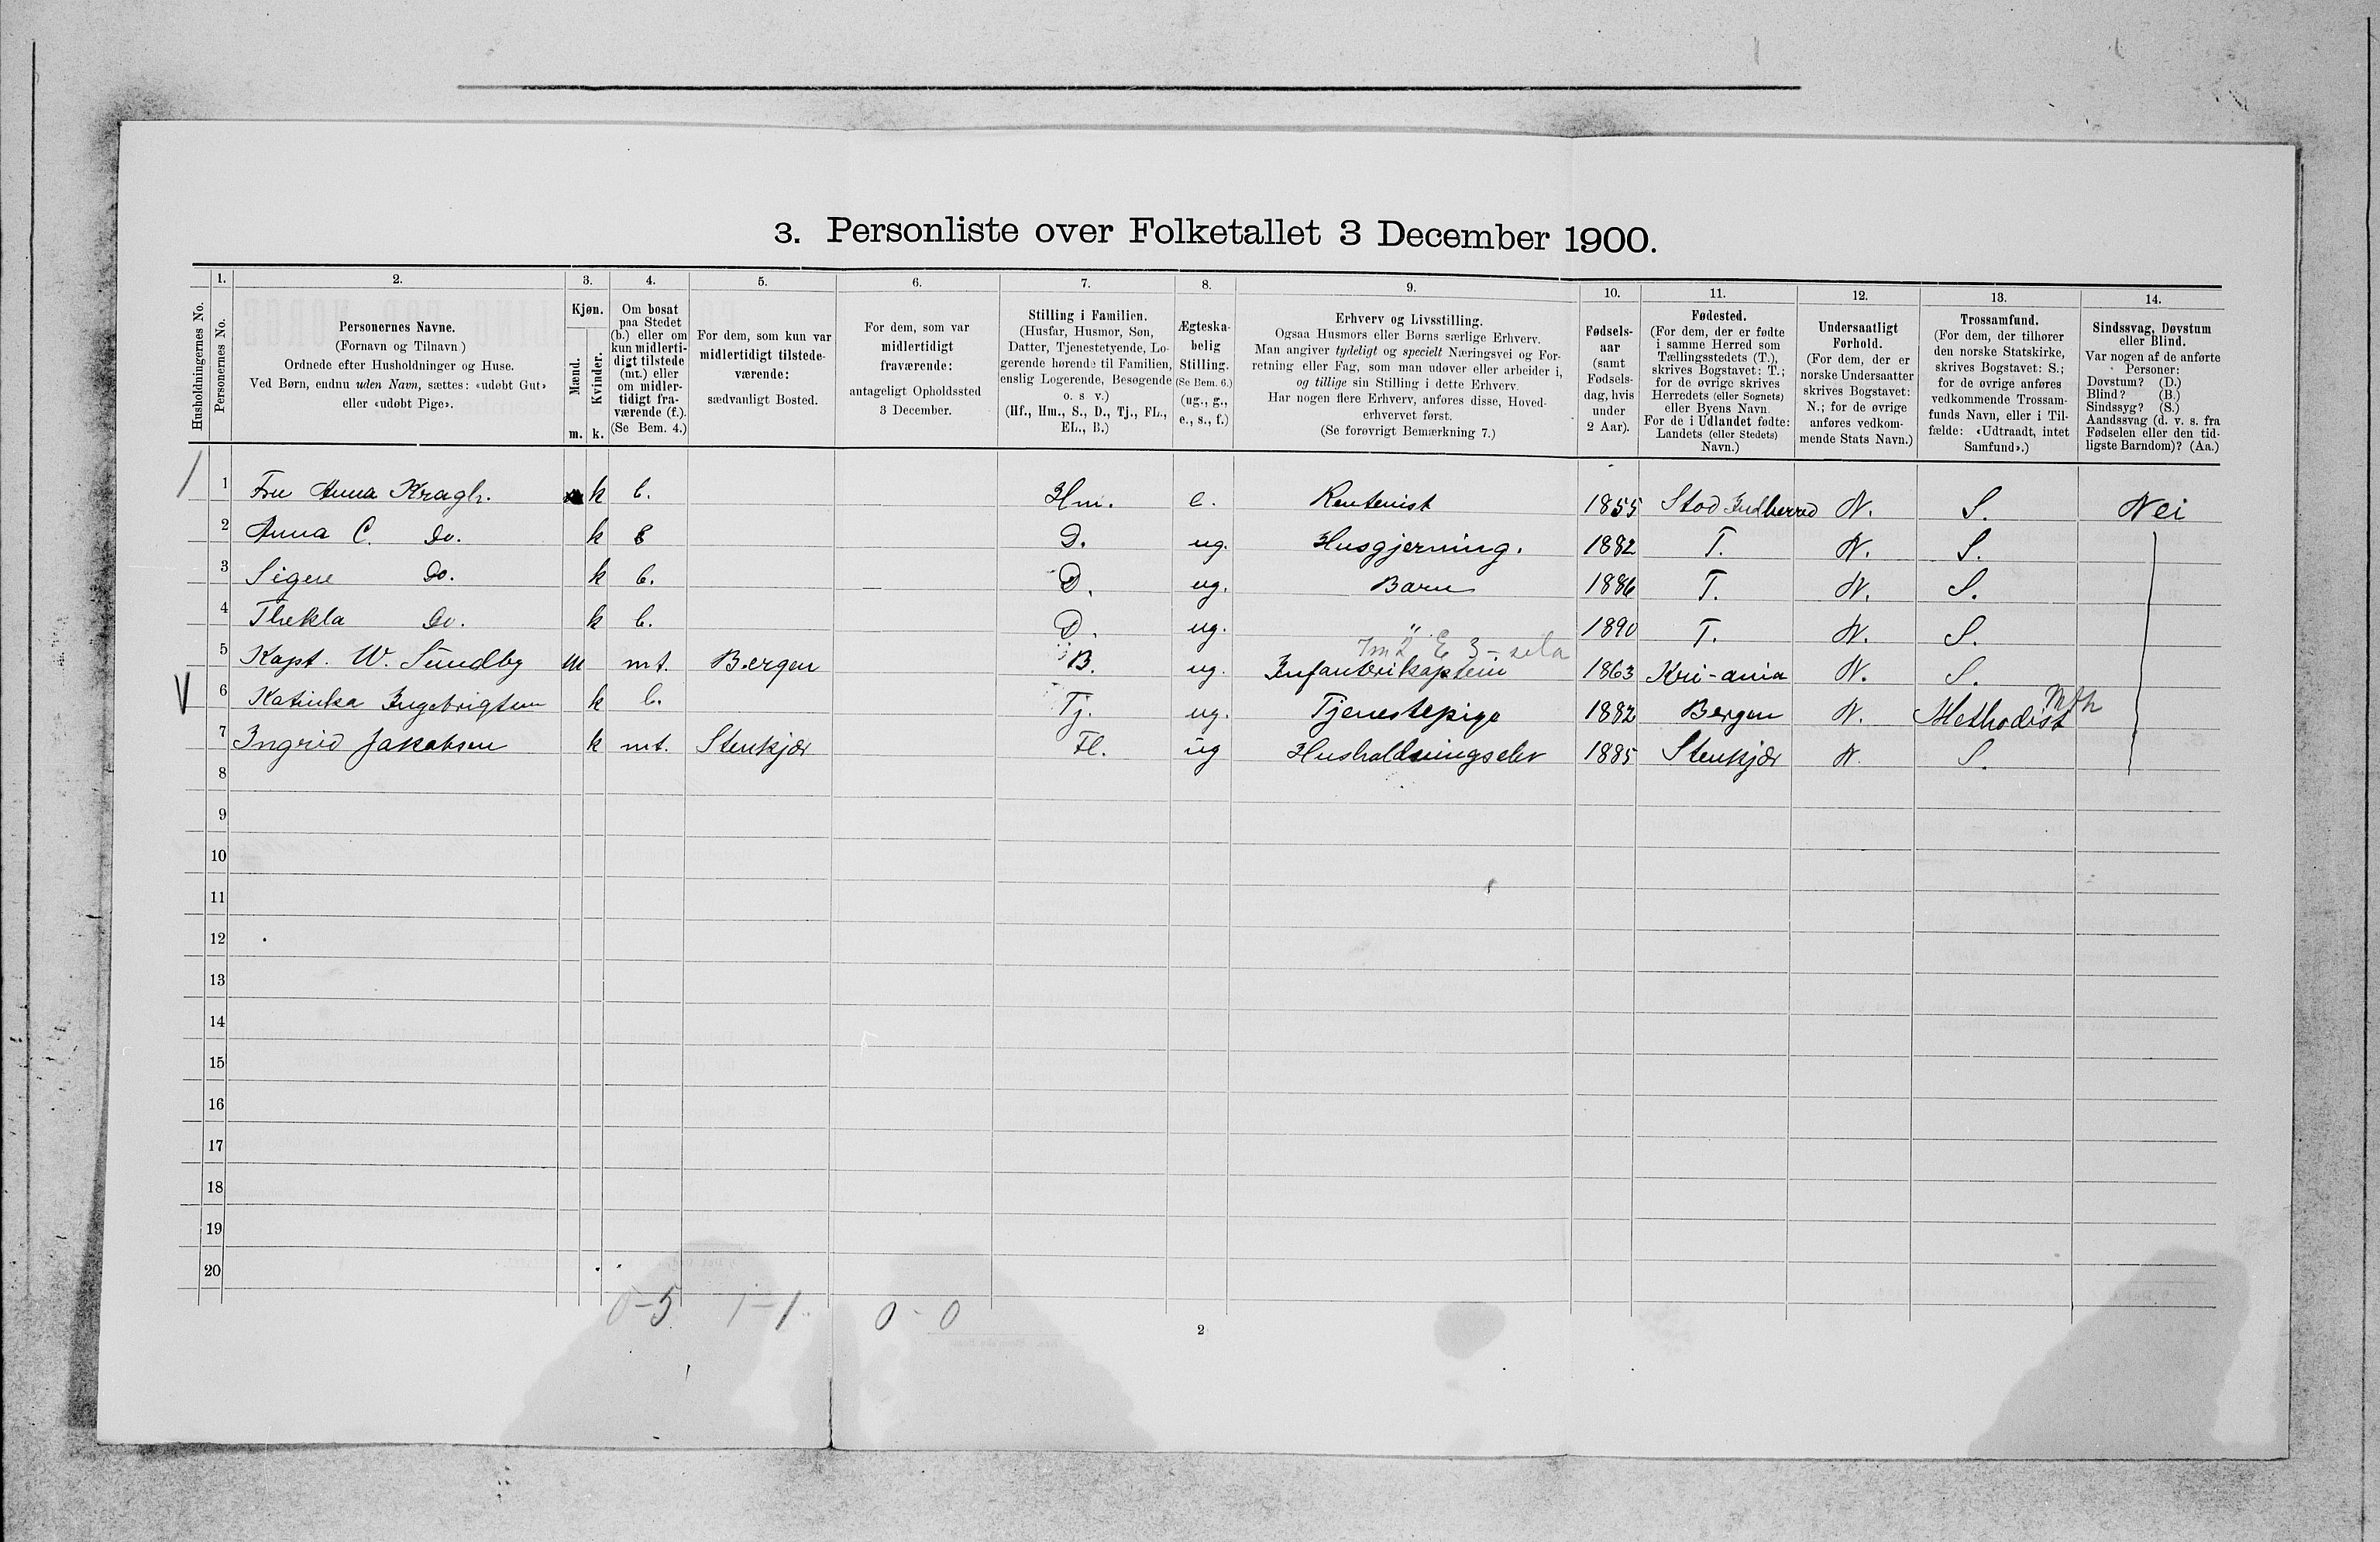 3. Personliste over Folketallet 3 December 1900.
Husholdningernes No.
1.
Personernes No.
2.
Personernes Navne.
(Fornavn og Tilnavn)
Ordnede efter Husholdninger og Huse.
Ved Børn, endnu uden Navn, sættes: «udøbt Gut»
eller «udøbt Pige».
3.
Kjøn.
Mænd.
Kvinder.
m. k.
4.
Om bosat
paa Stedet
(b.) eller om
kun midlerti-
digt tilstede
(mt.) eller
om midler-
tidigt fra-
værende (f.).
(Se Bem. 4.)
5.
For dem, som kun var
midlertidigt tilstede-
værende:
sædvanligt Bosted.
6.
For dem, som var
midlertidigt
fraværende:
antageligt Opholdssted
3 December.
7.
Stilling i Familien.
(Husfar, Husmor, Søn,
Datter, Tjenestetyende, Lo-
gerende hørende til Familien,
enslig Logerende, Besøgende
o. s v.)
(Hf., Hm., S., D., Tj., FL.,
EL., B.)
8.
Ægteska-
belig
Stilling.
(Se Bem. 6.)
(ug., g.,
e., s., f.)
9.
Erhverv og Livsstilling.
Ogsaa Husmors eller Børns særlige Erhverv.
Man angiver tydeligt og specielt Næringsvei og For-
retning eller Fag, som man udøver eller arbeider i,
og tillige sin Stilling i dette Erhverv.
Har nogen flere Erhverv, anføres disse, Hoved-
erhvervet først.
(Se forøvrigt Bemærkning 7.)
10.
Fødsels-
aar
(samt
Fødsels-
dag, hvis
under
2 Aar).
11.
Fødested.
(For dem, der er fødte
i samme Herred som
Tællingsstedets (T.),
skrives Bogstavet: T.;
for de øvrige skrives
Herredets (eller Sognets)
eller Byens Navn.
For de i Udlandet fødte:
Landets (eller Stedets)
Navn.)
12.
Undersaatligt
Forhold.
(For dem, der er
norske Undersaatter
skrives Bogstavet:
N.; for de øvrige
anføres vedkom-
mende Stats Navn.)
13.
Trossamfund.
(For dem, der tilhører
den norske Statskirke,
skrives Bogstavet: S.;
for de øvrige anføres
vedkommende Trossam-
funds Navn, eller i Til-
fælde: «Udtraadt, intet
Samfund».)
14.
Sindssvag, Døvstum
eller Blind.
Var nogen af de anførte
Personer:
Døvstum? (D.)
Blind? (B.)
Sindssyg? (S.)
Aandssvag (d. v. s. fra
Fødselen eller den tid-
ligste Barndom)? (Aa.)
1 Fru Anna Kragh. k b. Hm. e. Rentenist 1855 Stod Indherred N. S. Nei
2 Anna C. Do. k b D. ug. Husgjerning. 1882 T. N. S.
3 Signe Do. k b. D. ug. Barn 1886 T. N. S.
4 Thekla Do. k b. D. ug. " 1890 T. N. S.
5 Kapt. W. Sundby m mt. Bergen B. ug. Infanterikaptein 1863 Kri-ania N. S.
6 Katinka Ingebrigtsen k b. Tj. ug. Tjenestepige 1882 Bergen N. Methodist Mth
7 Ingrid Jakobsen k mt. Stenkjær Fl. ug Husholdningselev 1885 Stenkjær N. S.
8
9
10
11
12
13
14
15
16
17
18
19
20
0-5 1-1 0-0
2